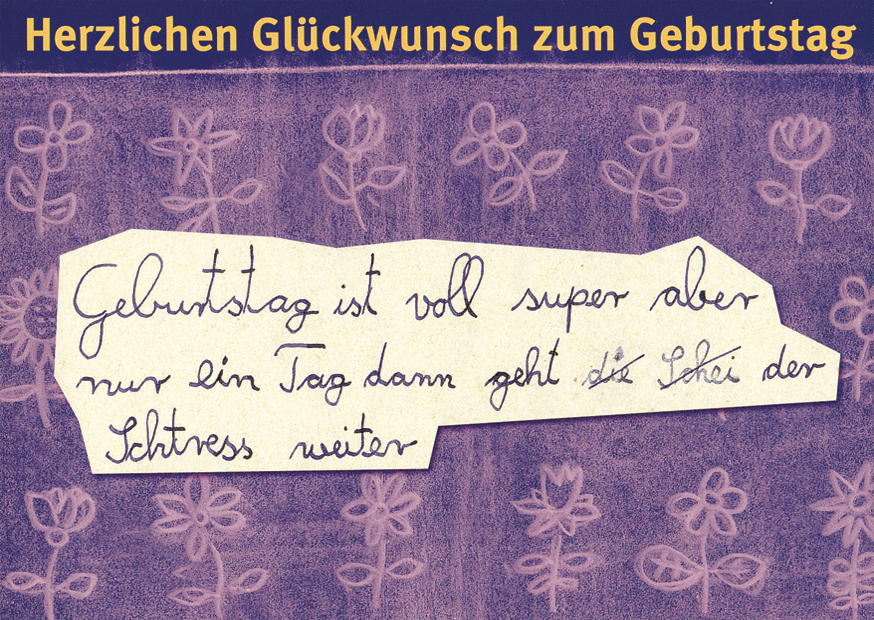 Herzlichen Glückwunsch zum Geburtstag
Geburtstag ist voll super aber
nur ein Tag dann geht die Schei der
Schtress weiter